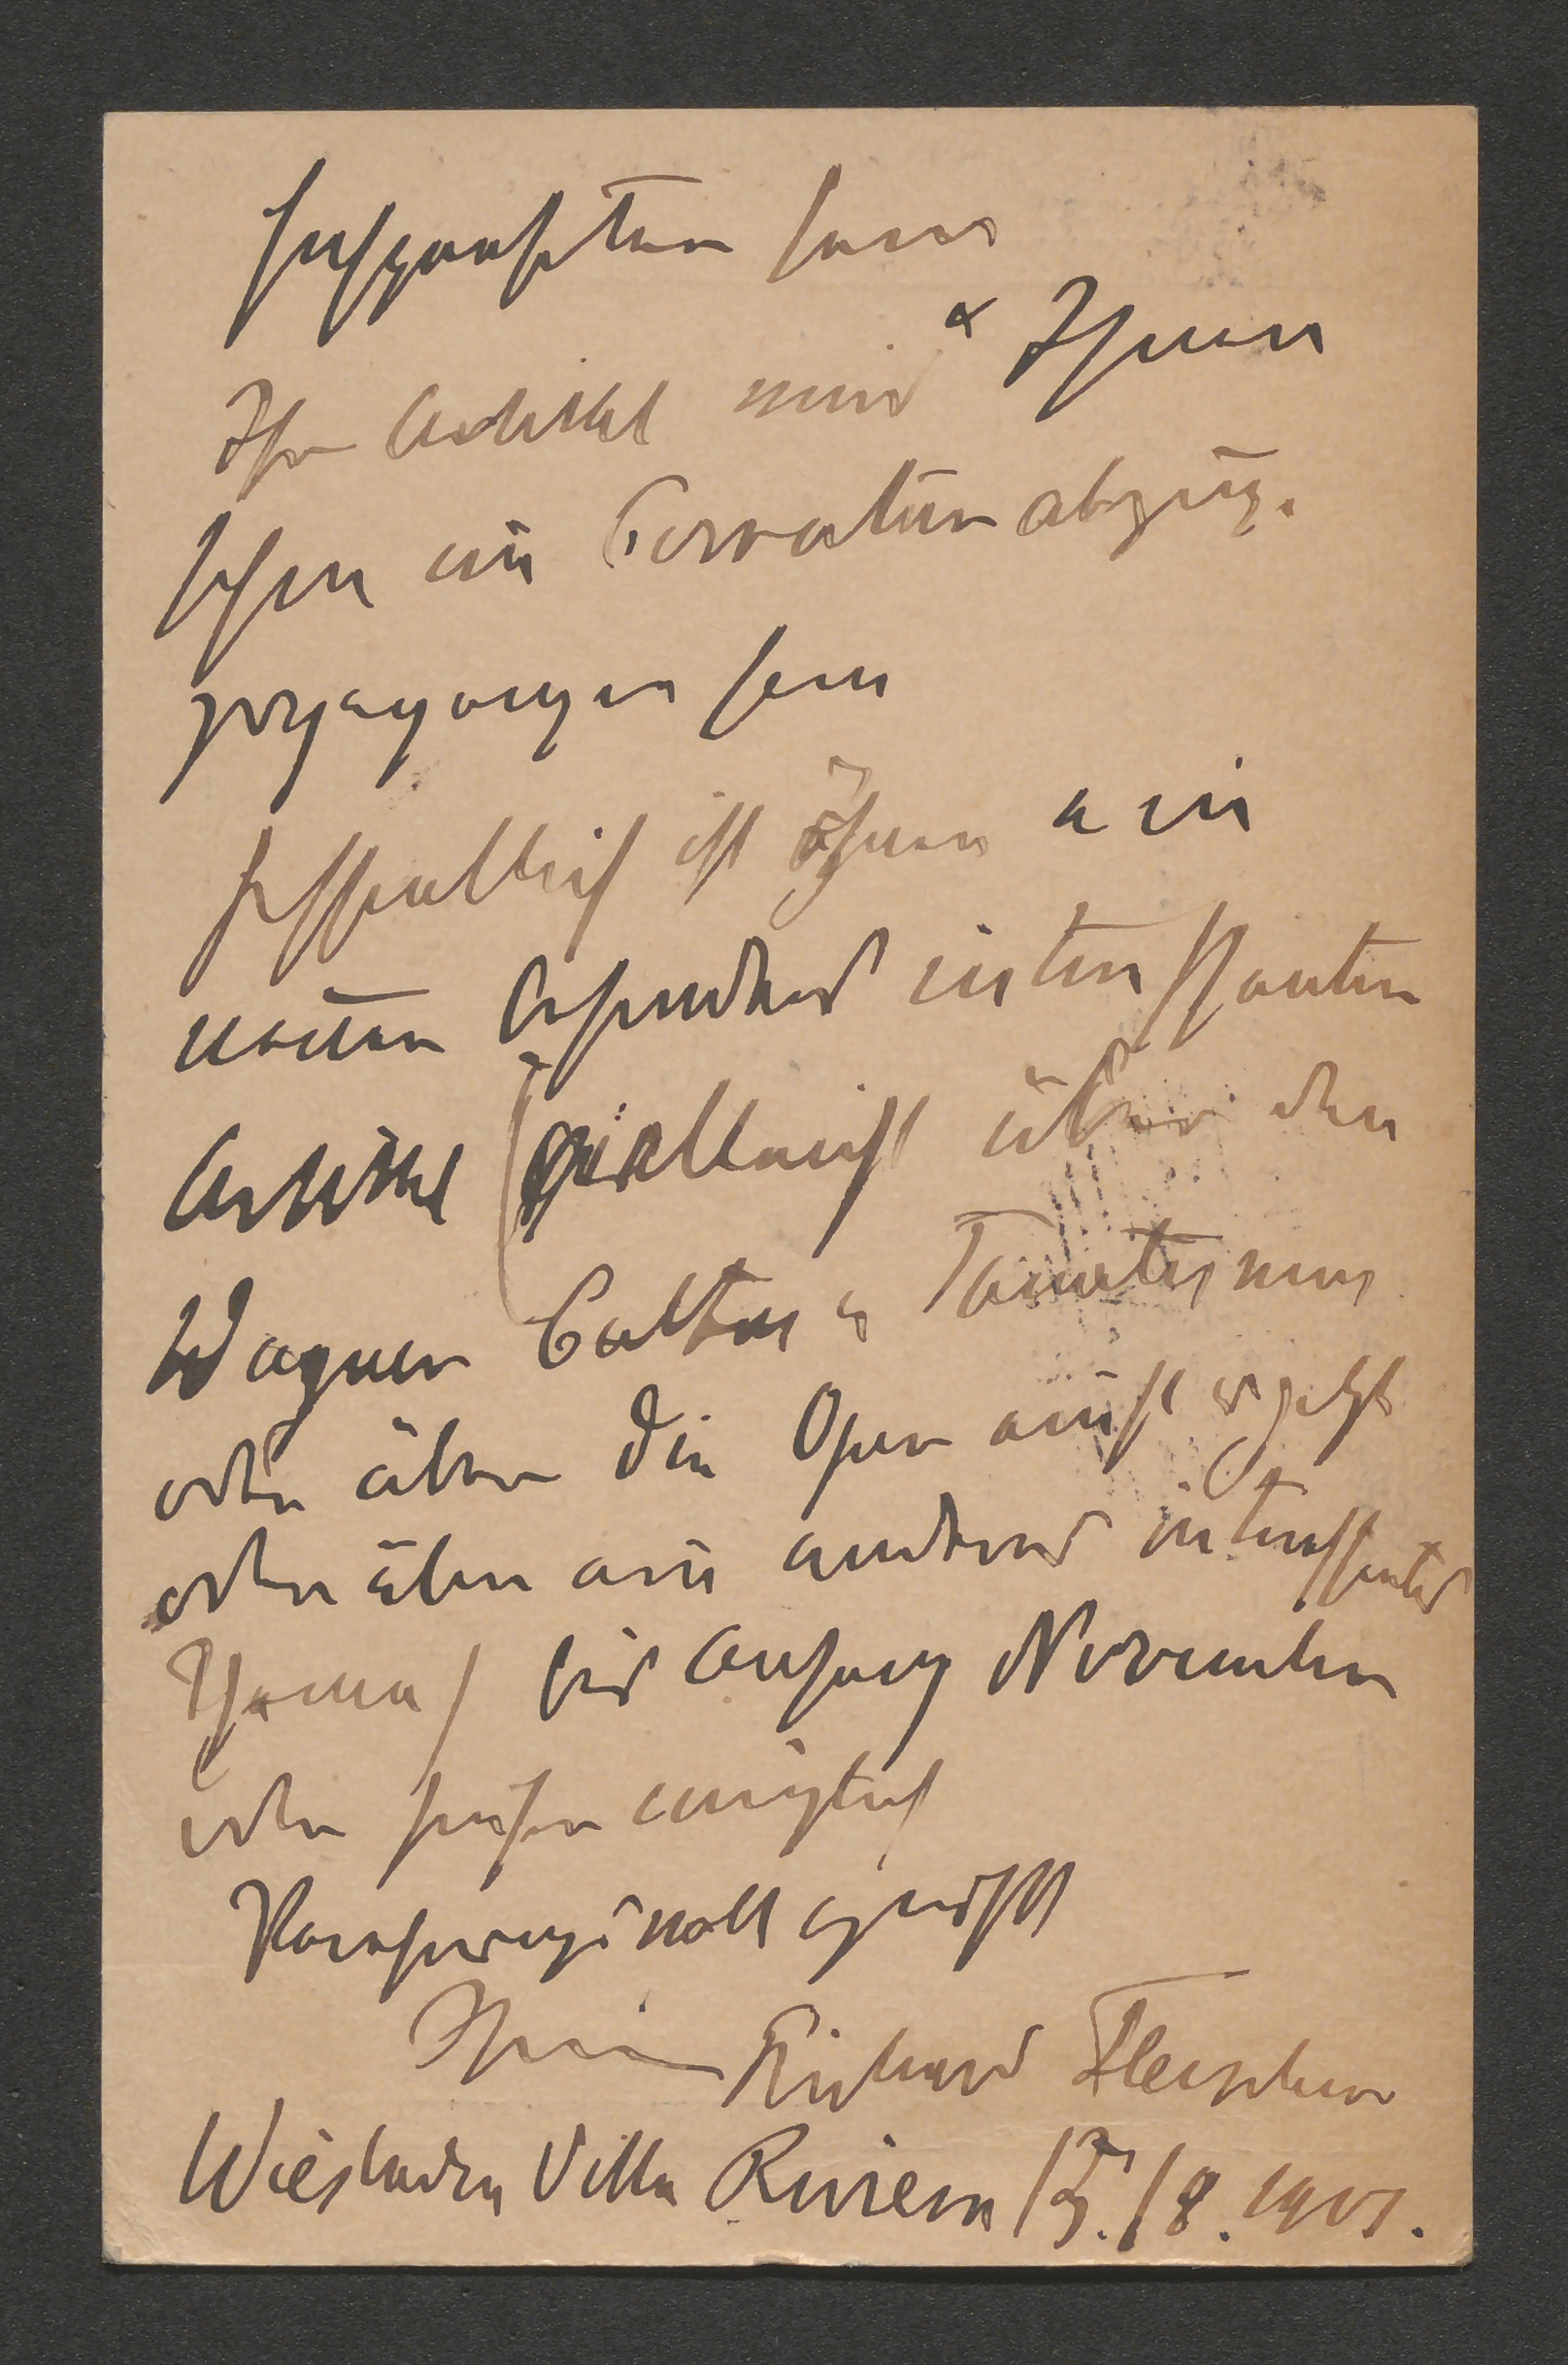 Hochgeehrter Herr
Ihr Artikel wird Ihnen
schon ein Correcturabzug.
zugegangen sein
Hoffentlich ist Ihnen ein
neuer interessanter
Artikel (vielleicht über den
Wagner Cultus u Fanatismus
oder über die Oper einst u jetzt
oder über ein anderes interessantes
Thema) bis Anfang November
oder früher möglich
Verehrungsvoll grüßt
Ihr Richard Fleischer
Wiesbaden Villa Riviera /8. 1901.